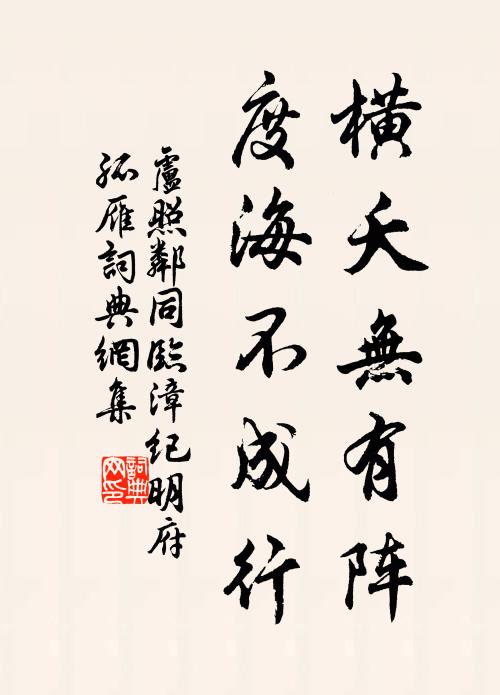 横夭無有阵
度海不成行
盧照鄰同臨漳紀明府
孤雁詞典網集
詞典
网印